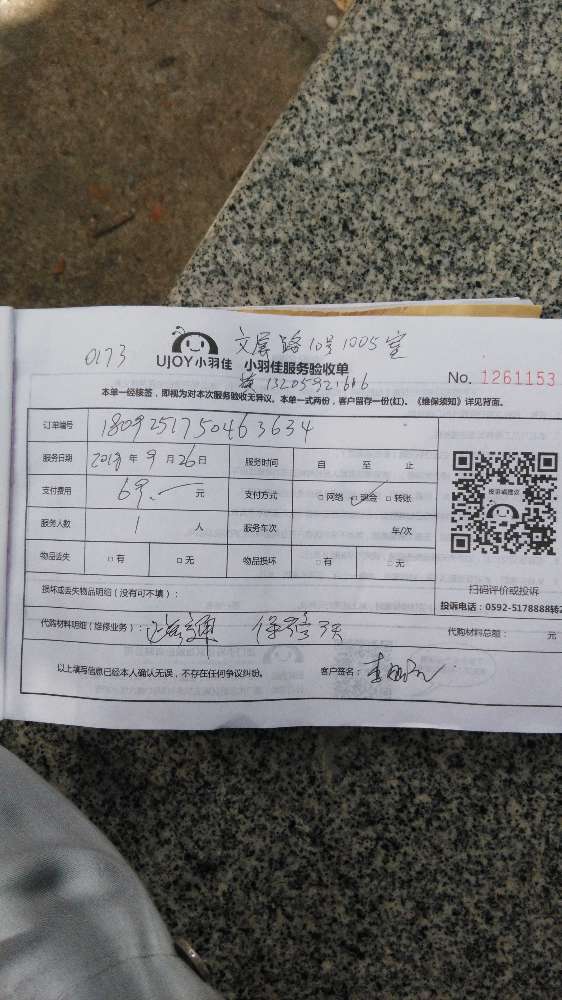 0173
文屏路10号1005室
UJOY小羽佳 小羽佳服务验收单
13205921616
No. 1261153
本单一经核签，即视为对本次服务验收无异议。本单一式两份，客户留存一份(红)。《维保须知》详见背面。
订单编号 1809251750463634
服务日期 2018年9月26日 服务时间 自 至 止
支付费用 69.— 元 支付方式 □网络 ☑现金 □转账
服务人数 1 人 服务车次 车/次
物品丢失 □有 □无 物品损坏 □有 □无
投诉或建议
扫码评价或投诉
投诉电话：0592-5178888转2
损坏或丢失物品明细（没有可不填）：
代购材料明细（维修业务）： 保修 天 代购材料总额： 元
以上填写信息已经本人确认无误，不存在任何争议纠纷。 客户签名：李